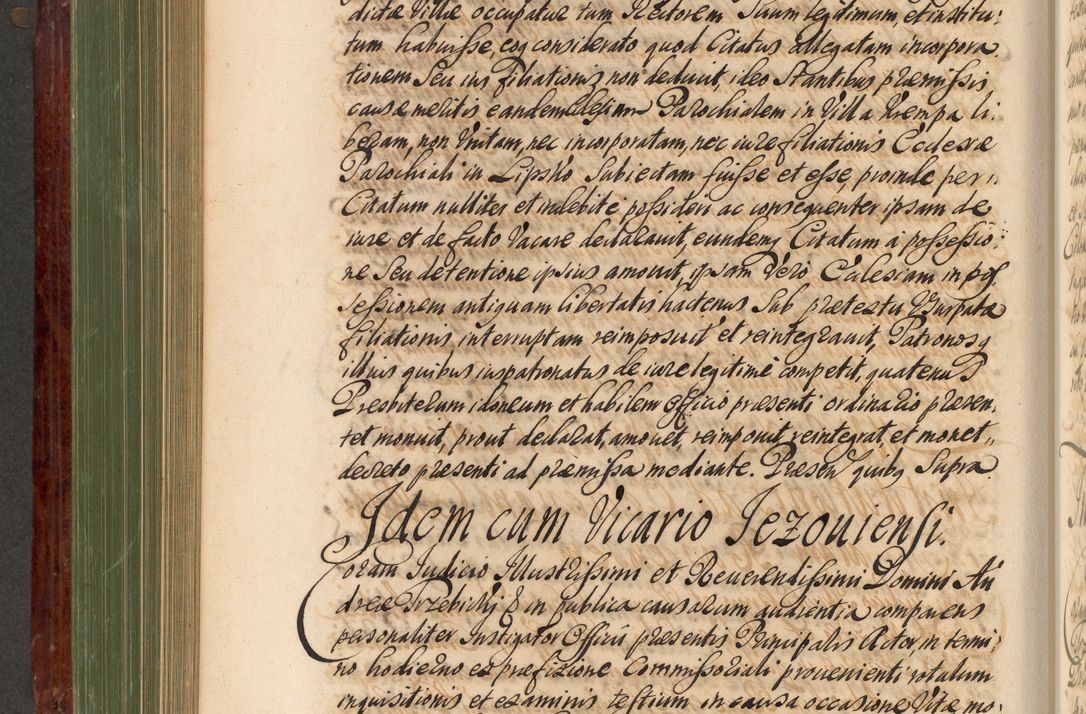 dictæ Villæ occupatæ tam Rectorem suum legitimum, et institu-
tum habuisse, eoq considerato quod Citatus allegatam incorpora
tionem Seu ius filiationis non deduxit, ideo Stantibus præmissis
causæ meritis eandem Ecclesiam Parochialem in Villa Krempa li:
beram, non Unitam, nec incorporatam, nec iure filiationis Ecclesiæ
Parochiali in Lipsko Subiectam fuisse et esse, proinde per
Citatum nulliter et indebite possideri ac consequenter ipsam de
iure et de facto Vacare declarauit, eundemq Citatum à possessio:
ne Seu detentione ipsius amouit, ipsam Vero Ecclesiam in pos
sessionem antiquam libertatis hactenus Sub prætextu Usurpatæ
filiationis interruptam reimposuit et reintegrauit, Patronosq
illius quibus iuspatronatus de iure legitimè competit, quatenus
Presbiterum idoneum et habilem Officio præsenti ordinario præsen,
tet monuit, prout declarat, amouet, reimponit, reintegrat et monet,,
decreto præsenti ad præmissa mediante. Præsen quibq Supra
Idem cum Vicario Jezouiensi.
Coram Iudicio Illustrissimi et Reuerendissimi Domini An
dreæ Trzebicki & in publica causarum audientia comparens
personaliter Instigator Officii præsentis Principalis Actor, in termi:
no hodierno ex præfixione Commissoriali prouenienti rotulum
inquisitionis et examinis testium in causa occasione Vitæ mo: